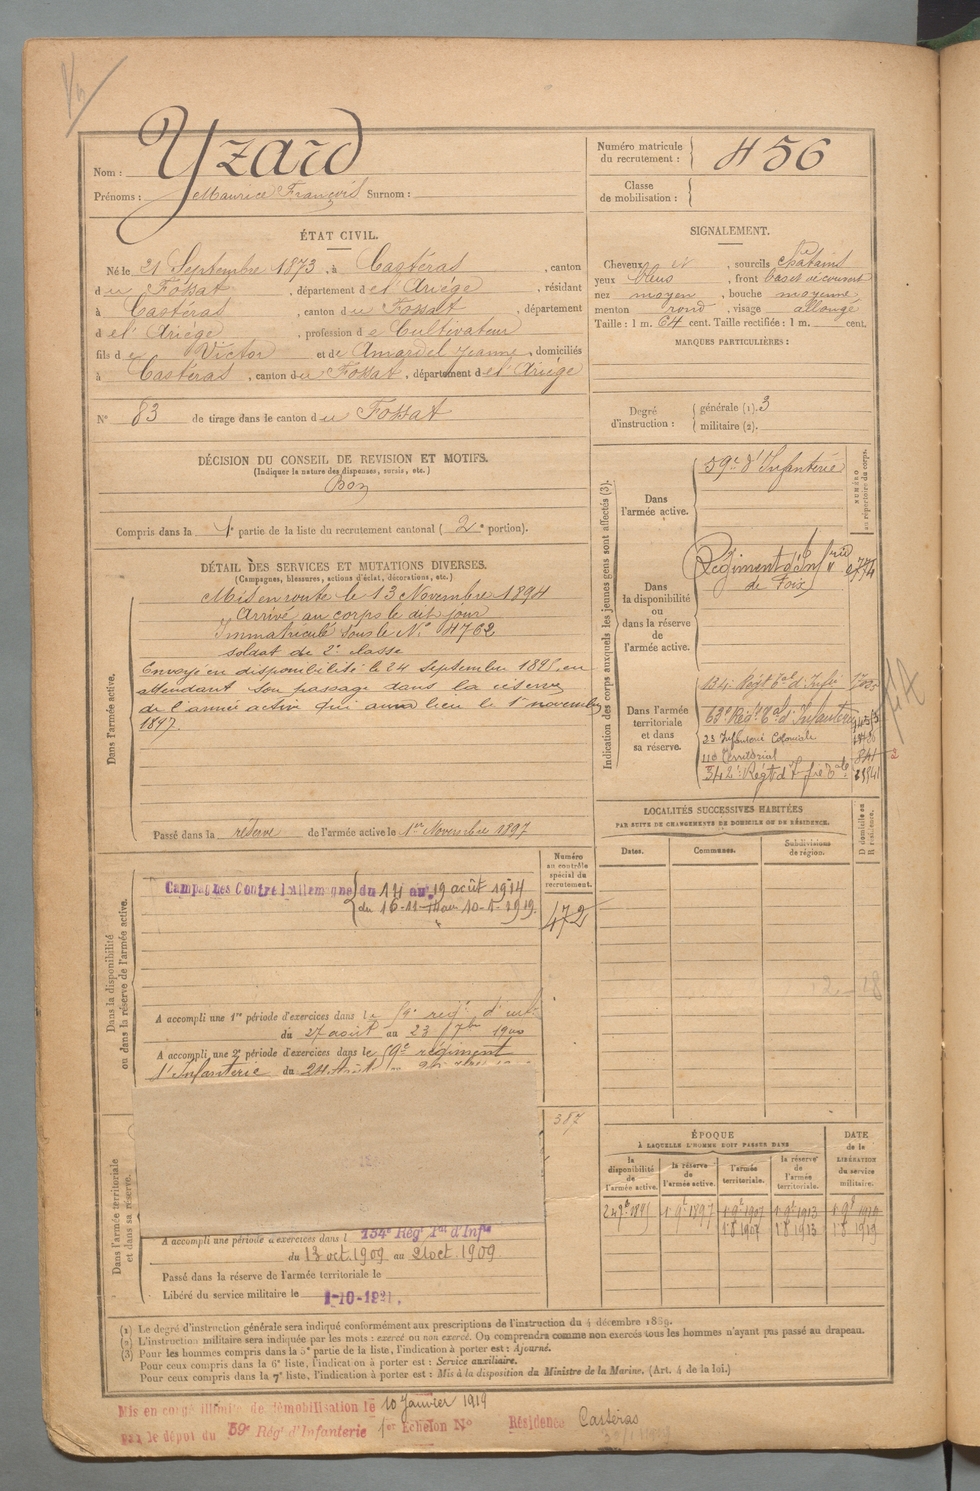 Nom : Yzard
Prénoms : Maurice François Surnom :
Numéro matricule du recrutement : 456
Classe de mobilisation :
ÉTAT CIVIL.
Né le 21 Septembre 1873, à Castéras, canton
du Fossat, département de l'Ariége, résidant
à Castéras, canton du Fossat, département
de l'Ariége, profession de Cultivateur
fils de Victor et de Amardel Jeanne, domiciliés
à Castéras, canton du Fossat, département de l'Ariége
N° 83 de tirage dans le canton du Fossat
SIGNALEMENT.
Cheveux et, sourcils châtains
yeux bleus, front bas et découvert
nez moyen, bouche moyenne
menton rond, visage allongé
Taille : 1 m. 64 cent. Taille rectifiée : 1 m. cent.
MARQUES PARTICULIÈRES :
Degré d'instruction : générale (1). 3
militaire (2).
DÉCISION DU CONSEIL DE REVISION ET MOTIFS.
(Indiquer la nature des dispenses, sursis, etc.)
Bon
Compris dans la 1e partie de la liste du recrutement cantonal ( 2e portion).
DÉTAIL DES SERVICES ET MUTATIONS DIVERSES.
(Campagnes, blessures, actions d'éclat, décorations, etc.)
Dans l'armée active.
Mis en route le 13 Novembre 1894
Arrivé au corps le dit jour
Immatriculé sous le N° 4762
soldat de 2e classe
Envoyé en disponibilité le 24 septembre 1895 en
attendant son passage dans la réserve
de l'armée active qui aura lieu le 1er novembre
1897.
Passé dans la réserve de l'armée active le 1er Novembre 1897
Indication des corps auxquels les jeunes gens sont affectés (3).
NUMÉRO au répertoire du corps.
Dans l'armée active.
59e d'Infanterie
Dans la disponibilité ou dans la réserve de l'armée active.
Régiment d'Infrie
de Foix
Dans l'armée territoriale et dans sa réserve.
134e Régt Tal d'Infie
63e Régt Tal d'Infanterie
23 Infanterie Coloniale
116 Territorial 841
342e Régt d'Infie
LOCALITÉS SUCCESSIVES HABITÉES
PAR SUITE DE CHANGEMENTS DE DOMICILE OU DE RÉSIDENCE.
Dates.
Communes.
Subdivisions de région.
D domicile ou R résidence.
Dans la disponibilité ou dans la réserve de l'armée active.
Numéro au contrôle spécial du recrutement.
472
Campagnes Contre l'allemagne du 14 au 19 août 1914
du 16-11-14 au 10-1-1919.
A accompli une 1re période d'exercices dans le 59e régt d'inf
du 27 août au 23 7bre 1900
A accompli une 2e période d'exercices dans le 59e régiment
d'Infanterie du 24 Août au
387
Dans l'armée territoriale et dans sa réserve.
A accompli une période d'exercices dans l 134e Régt Tal d'Infie
du 13 oct. 1909 au 21 oct. 1909
Passé dans la réserve de l'armée territoriale le
Libéré du service militaire le 1-10-1921.
ÉPOQUE
À LAQUELLE L'HOMME DOIT PASSER DANS
la disponibilité de l'armée active.
la réserve de l'armée active.
l'armée territoriale.
la réserve de l'armée territoriale.
DATE de la LIBÉRATION du service militaire.
24 9e 1895 1 9e 1897 1 9e 1907 1 9e 1913
1 8 1907 1 8 1913 1 8 1919
(1) Le degré d'instruction générale sera indiqué conformément aux prescriptions de l'instruction du 4 décembre 1889.
(2) L'instruction militaire sera indiquée par les mots : exercé ou non exercé. On comprendra comme non exercés tous les hommes n'ayant pas passé au drapeau.
(3) Pour les hommes compris dans la 5e partie de la liste, l'indication à porter est : Ajourné.
Pour ceux compris dans la 6e liste, l'indication à porter est : Service auxiliaire.
Pour ceux compris dans la 7e liste, l'indication à porter est : Mis à la disposition du Ministre de la Marine. (Art. 4 de la loi.)
Mis en congé illimité de démobilisation le 10 Janvier 1919
par le dépot du 59e Régt d'Infanterie 1er Echelon N° Résidence Castéras